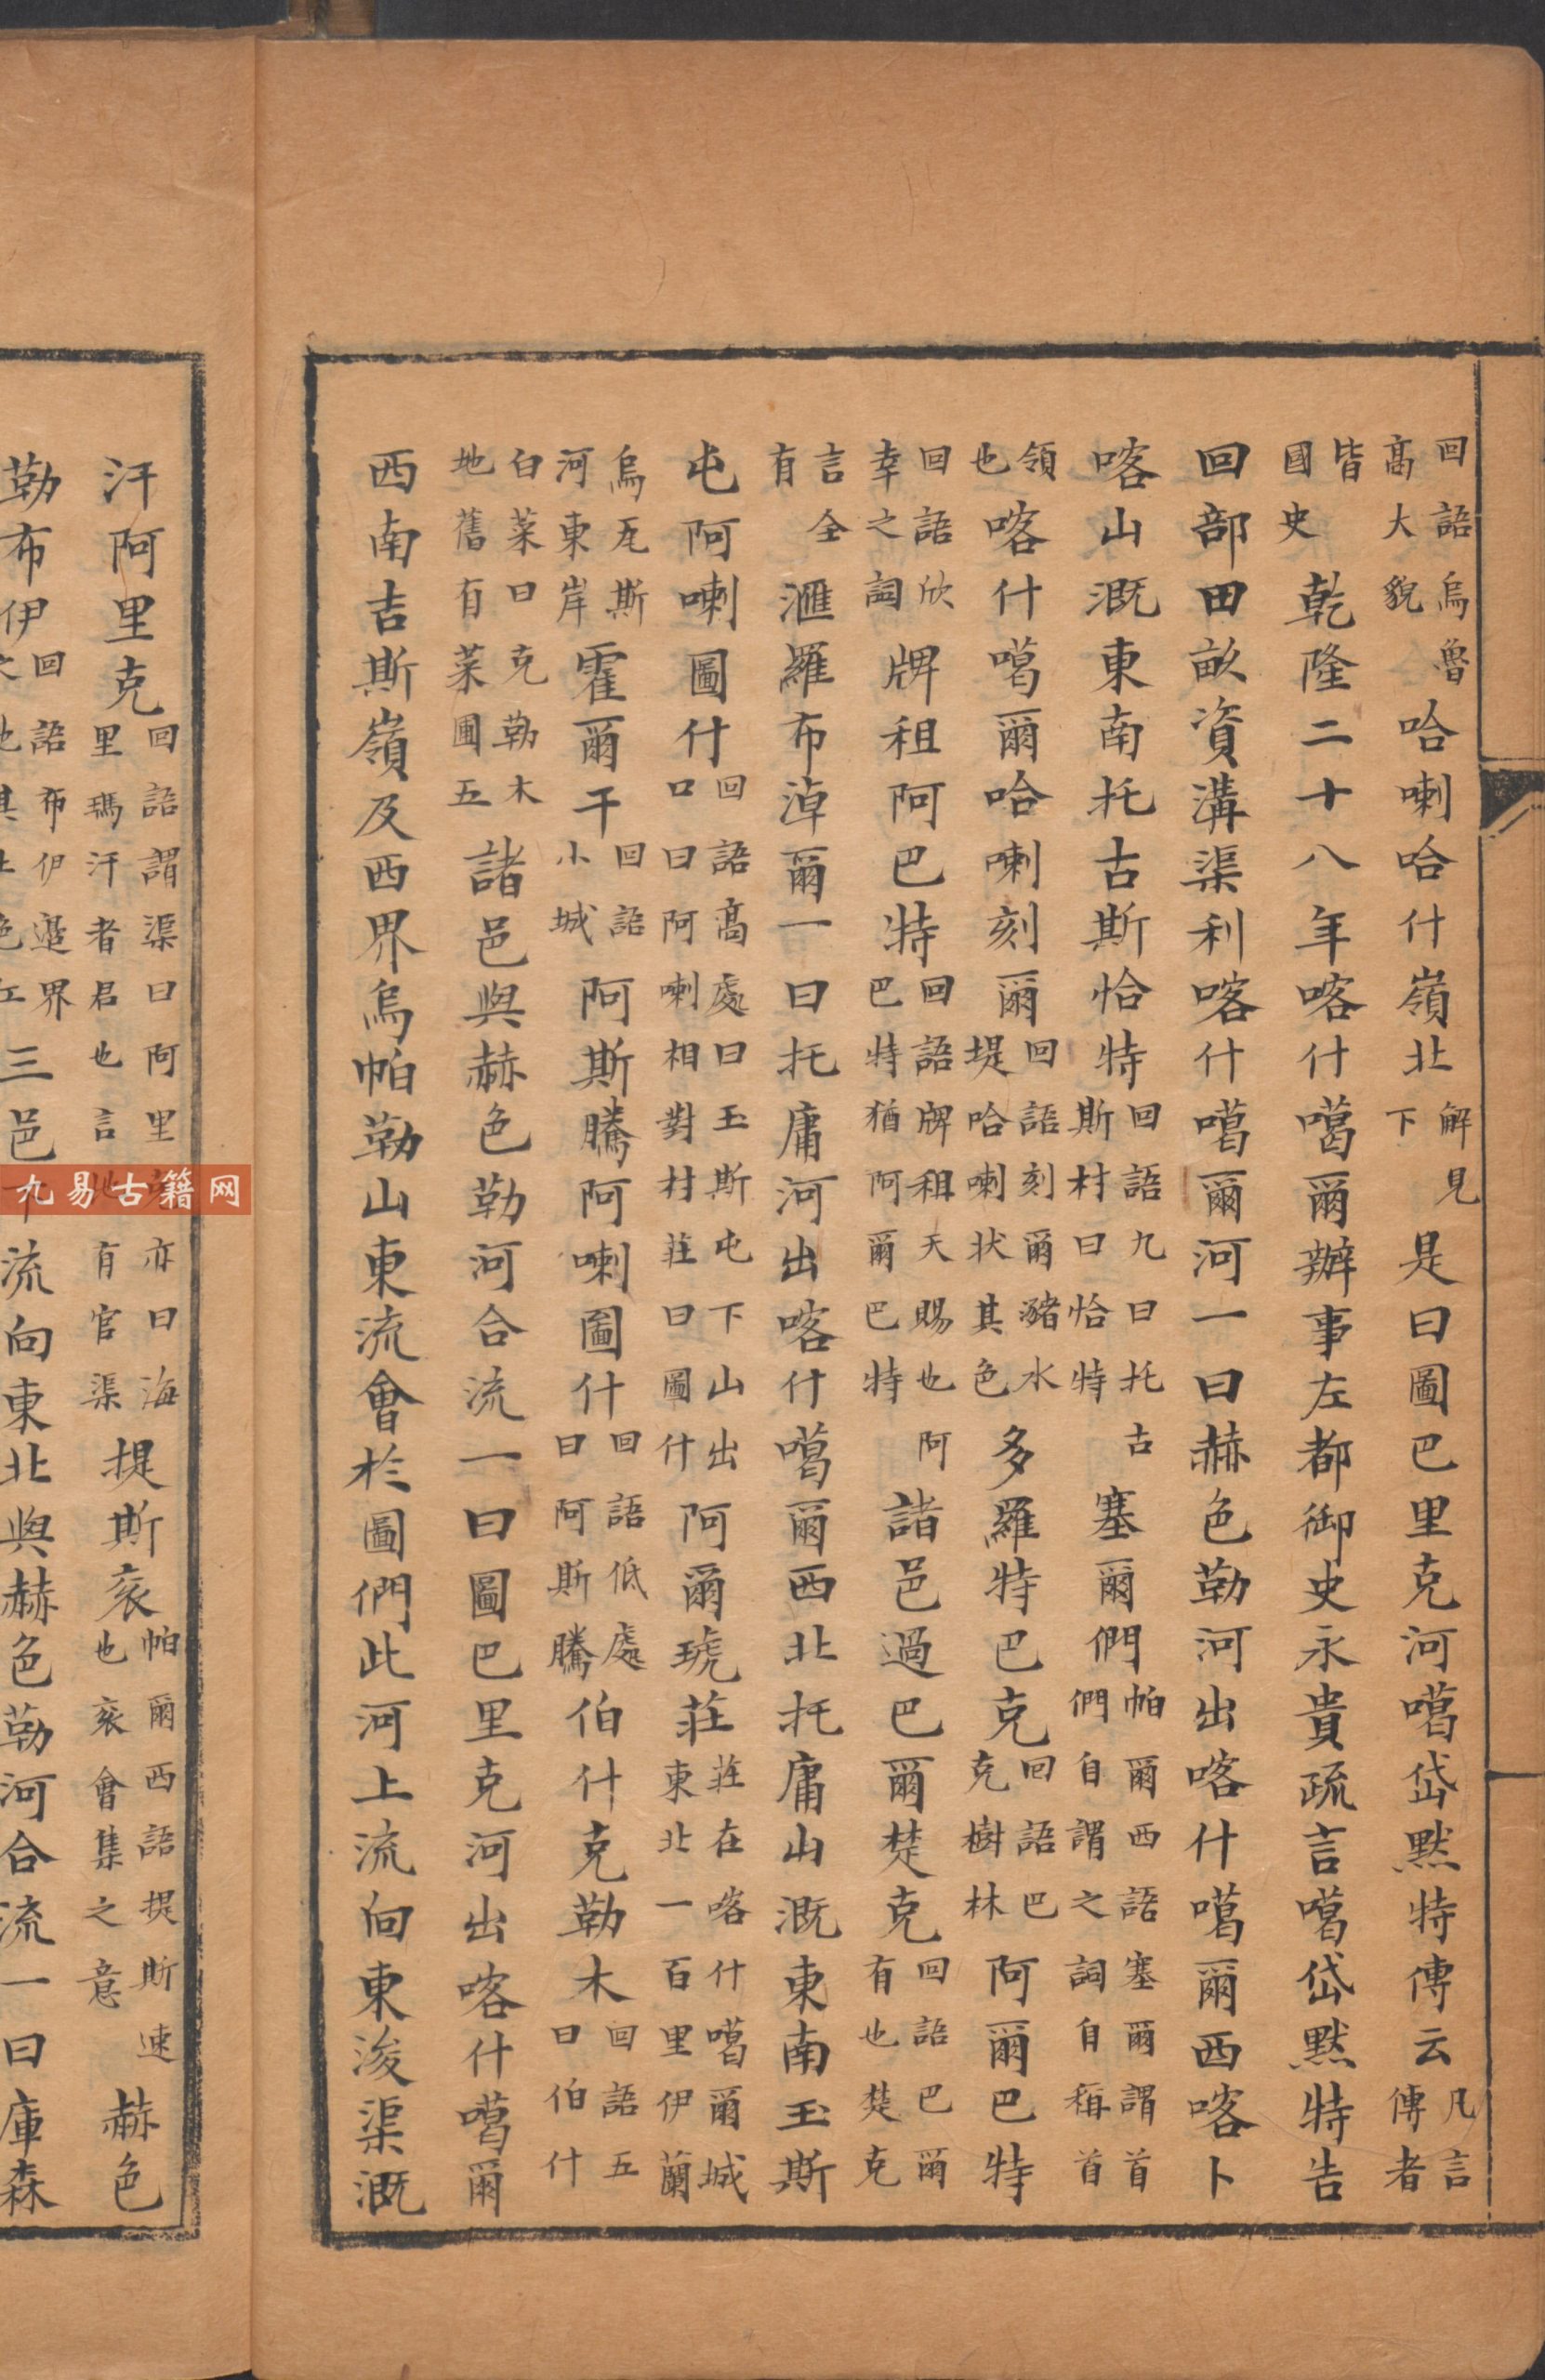 回語烏魯高大貌哈喇哈什嶺北解見下是曰圖巴里克河噶岱默特傳云凡言傳者
皆國史乾隆二十八年喀什噶爾辦事左都御史永貴疏言噶岱默特告
回部田畝資溝渠利喀什噶爾河一曰赫色勒河出喀什噶爾西喀卜
喀山溉東南托古斯恰特回語九曰托古斯村曰恰特塞爾們帕爾西語塞爾謂首們自謂之詞自稱首
領也喀什噶爾哈喇刻爾回語刻爾瀦水堤哈喇狀其色多羅特巴克回語巴克樹林阿爾巴特
回語欣幸之詞牌租阿巴特回語牌租天賜也阿巴特猶阿爾巴特諸邑過巴爾楚克回語巴爾有也楚克
言全有滙羅布淖爾一曰托庸河出喀什噶爾西北托庸山溉東南玉斯
屯阿喇圖什回語高處曰玉斯屯下山出口曰阿喇相對村莊曰圖什阿爾琥莊莊在喀什噶爾城東北一百里伊蘭
烏瓦斯河東岸霍爾干回語小城阿斯騰阿喇圖什回語低處曰阿斯騰伯什克勒木回語五曰伯什
白菜曰克勒木地舊有菜圃五諸邑與赫色勒河合流一曰圖巴里克河出喀什噶爾
西南吉斯嶺及西界烏帕勒山東流會於圖們此河上流向東浚渠溉
汗阿里克回語謂渠曰阿里亦曰海里瑪汗者君也言有官渠提斯袞帕爾西語提斯速也袞會集之意赫色
勒布伊回語布伊邊界三邑流向東北與赫色勒河合流一曰庫森
九易古籍网